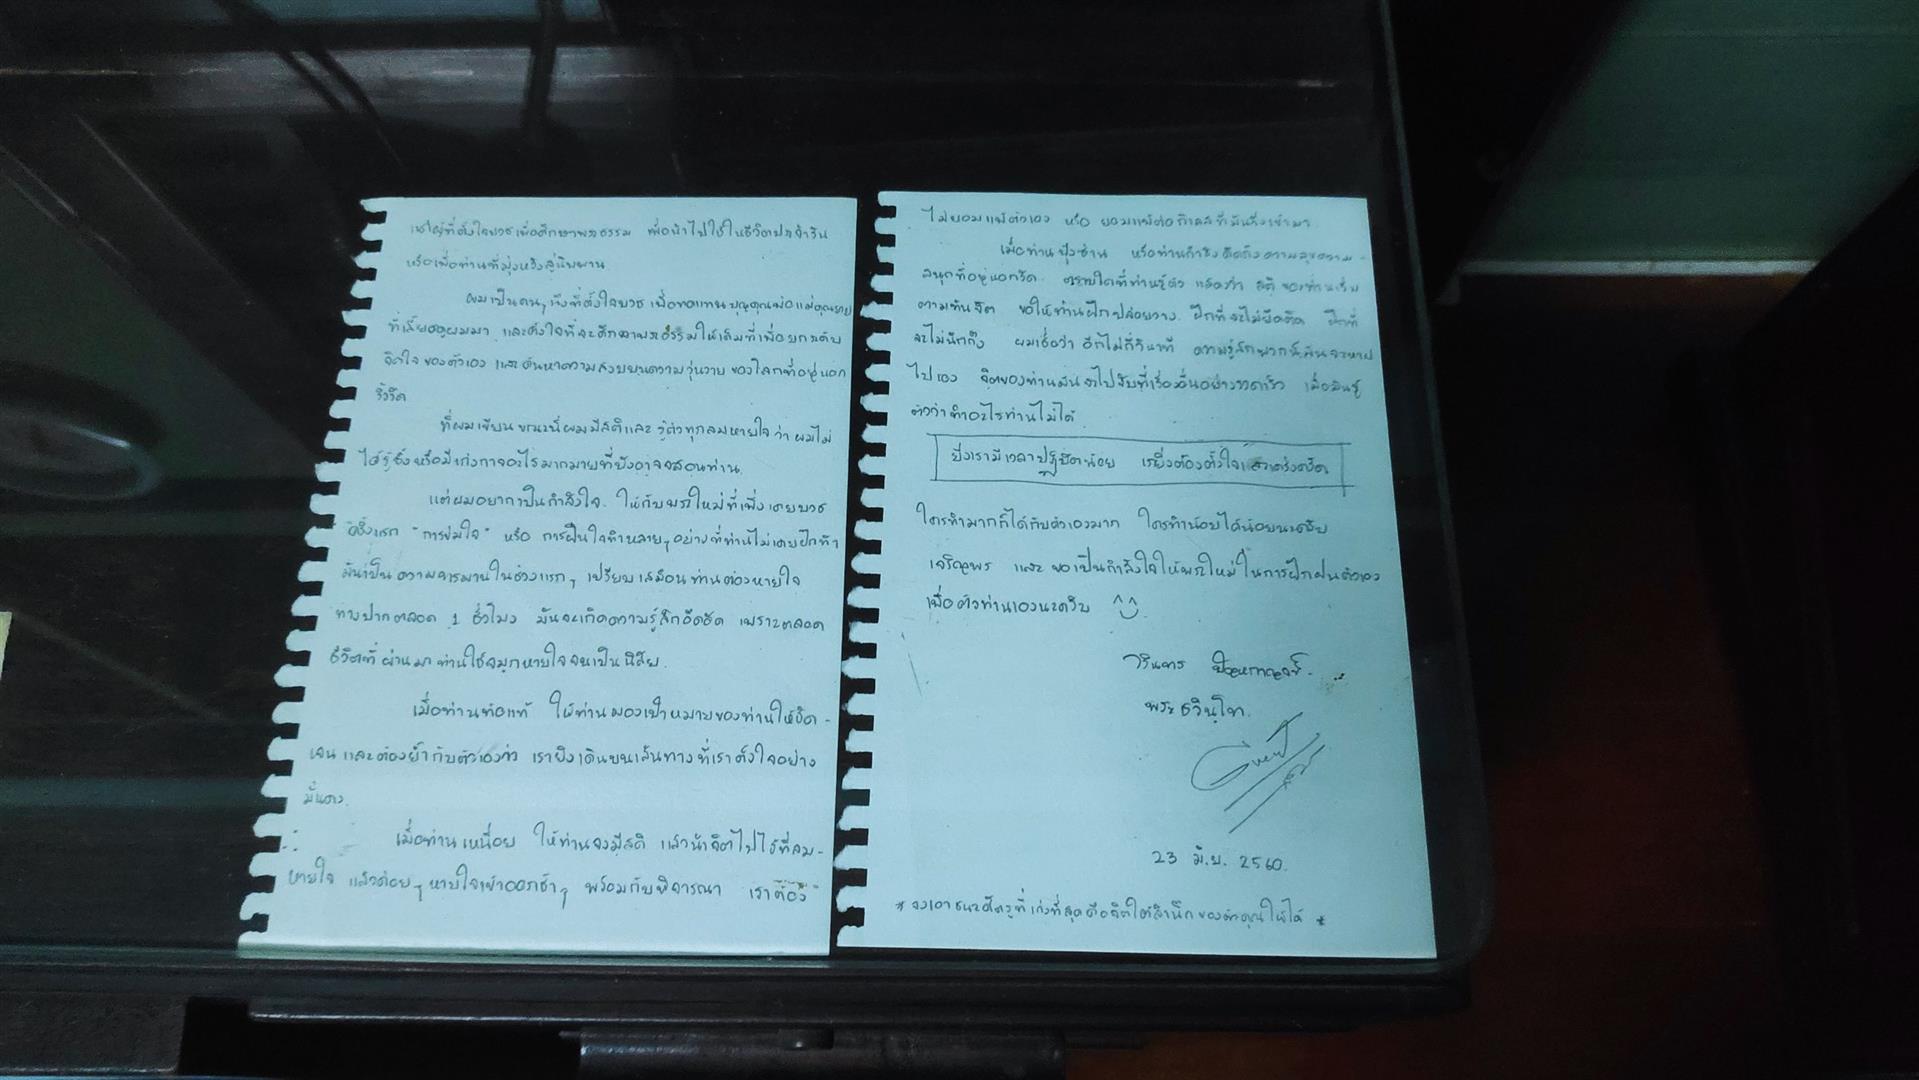 แด่ผู้ที่ตั้งใจบวชเพื่อศึกษาพระธรรม เพื่อนำไปใช้ในชีวิตประจำวัน
หรือเพื่อท่านที่มุ่งหวังสู่นิพพาน
ผมเป็นคนๆ หนึ่งที่ตั้งใจบวช เพื่อทดแทนบุญคุณพ่อแม่คุณยาย
ที่เลี้ยงดูผมมา และตั้งใจที่จะศึกษาพระธรรมให้เต็มที่เพื่อยกระดับ
จิตใจของตัวเอง และค้นหาความสงบบนความวุ่นวายของโลกที่อยู่นอก
รั้ววัด
ที่ผมเขียนขณะนี้ผมมีสติและรู้ตัวทุกลมหายใจว่าผมไม่
ได้รู้ซึ้งหรือมีเก่งกาจอะไรมากมายที่บังอาจสอนท่าน
แต่ผมอยากเป็นกำลังใจ ให้กับพระใหม่ที่เพิ่งเคยบวช
ครั้งแรก "การข่มใจ" หรือ การฝืนใจทำหลายๆ อย่างที่ท่านไม่เคยฝึกทำ
มันเป็นความทรมานในช่วงแรกๆ เปรียบเสมือนท่านต้องหายใจ
ทางปากตลอด 1 ชั่วโมง มันจะเกิดความรู้สึกอึดอัด เพราะตลอด
ชีวิตที่ผ่านมาท่านใช้จมูกหายใจจนเป็นนิสัย
เมื่อท่านท้อแท้ ให้ท่านมองเป้าหมายของท่านให้ชัด-
เจน และต้องย้ำกับตัวเองว่า เรายังเดินบนเส้นทางที่เราตั้งใจอย่าง
มั่นคง
เมื่อท่านเหนื่อย ให้ท่านจงมีสติ แล้วนำจิตไปไว้ที่ลม-
หายใจ แล้วค่อยๆ หายใจเข้าออกช้าๆ พร้อมกับพิจารณา เราต้อง
ไม่ยอมแพ้ตัวเอง หรือ ยอมแพ้ต่อกิเลสที่มันวิ่งเข้ามา
เมื่อท่านฟุ้งซ่าน หรือท่านกำลังคิดถึงความสุขความ-
สนุกที่อยู่นอกวัด ตราบใดที่ท่านรู้ตัว แสดงว่า สติของท่านเริ่ม
ตามทันจิต ขอให้ท่านฝึกปล่อยวาง ฝึกที่จะไม่ยึดติด ฝึกที่
จะไม่นึกถึง ผมเชื่อว่า อีกไม่กี่วินาที ความรู้สึกพวกนี้มันจะหาย
ไปเอง จิตของท่านมันจะไปจับที่เรื่องอื่นอย่างรวดเร็ว เมื่อมันรู้
ตัวว่าทำอะไรท่านไม่ได้
ยิ่งเรามีเวลาปฏิบัติน้อย เรายิ่งต้องตั้งใจและเคร่งครัด
ใครทำมากก็ได้กับตัวเองมาก ใครทำน้อยได้น้อยนะครับ
เจริญพร และขอเป็นกำลังใจให้พระใหม่ในการฝึกฝนตัวเอง
เพื่อตัวท่านเองนะครับ ^^
วรินทร
พระ ธวินฺโท
23 มิ.ย. 2560
* จงเอาชนะศัตรูที่เก่งที่สุดคือจิตใต้สำนึกของตัวคุณให้ได้ *